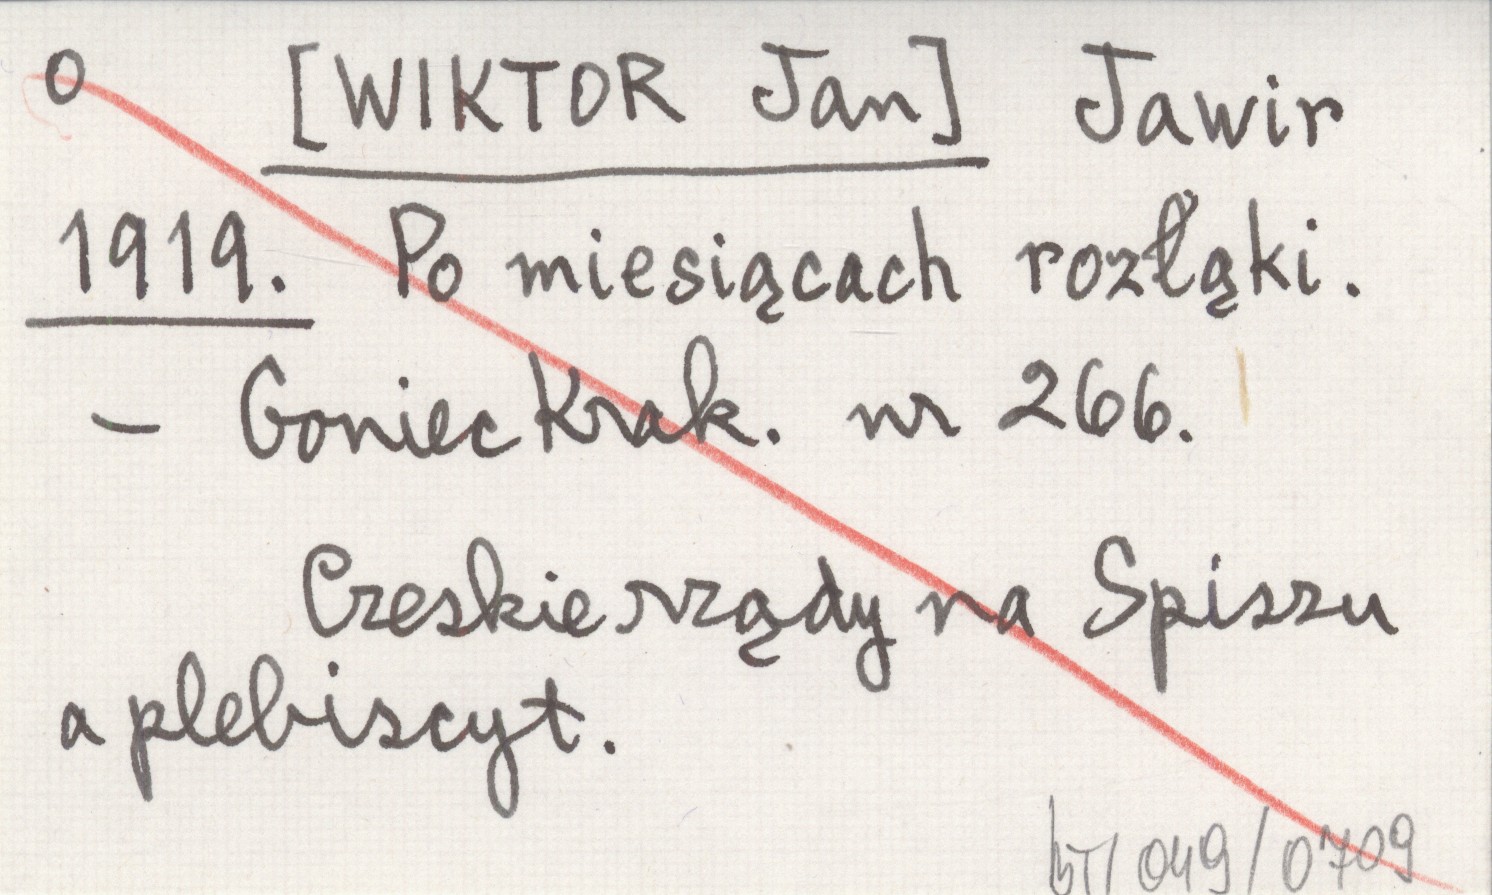 o [WIKTOR Jan] Jawir
1919. Po miesiącach rozłąki.
– Goniec Krak. nr 266.
Czeskie rządy na Spiszu
a plebiscyt.
049/0709